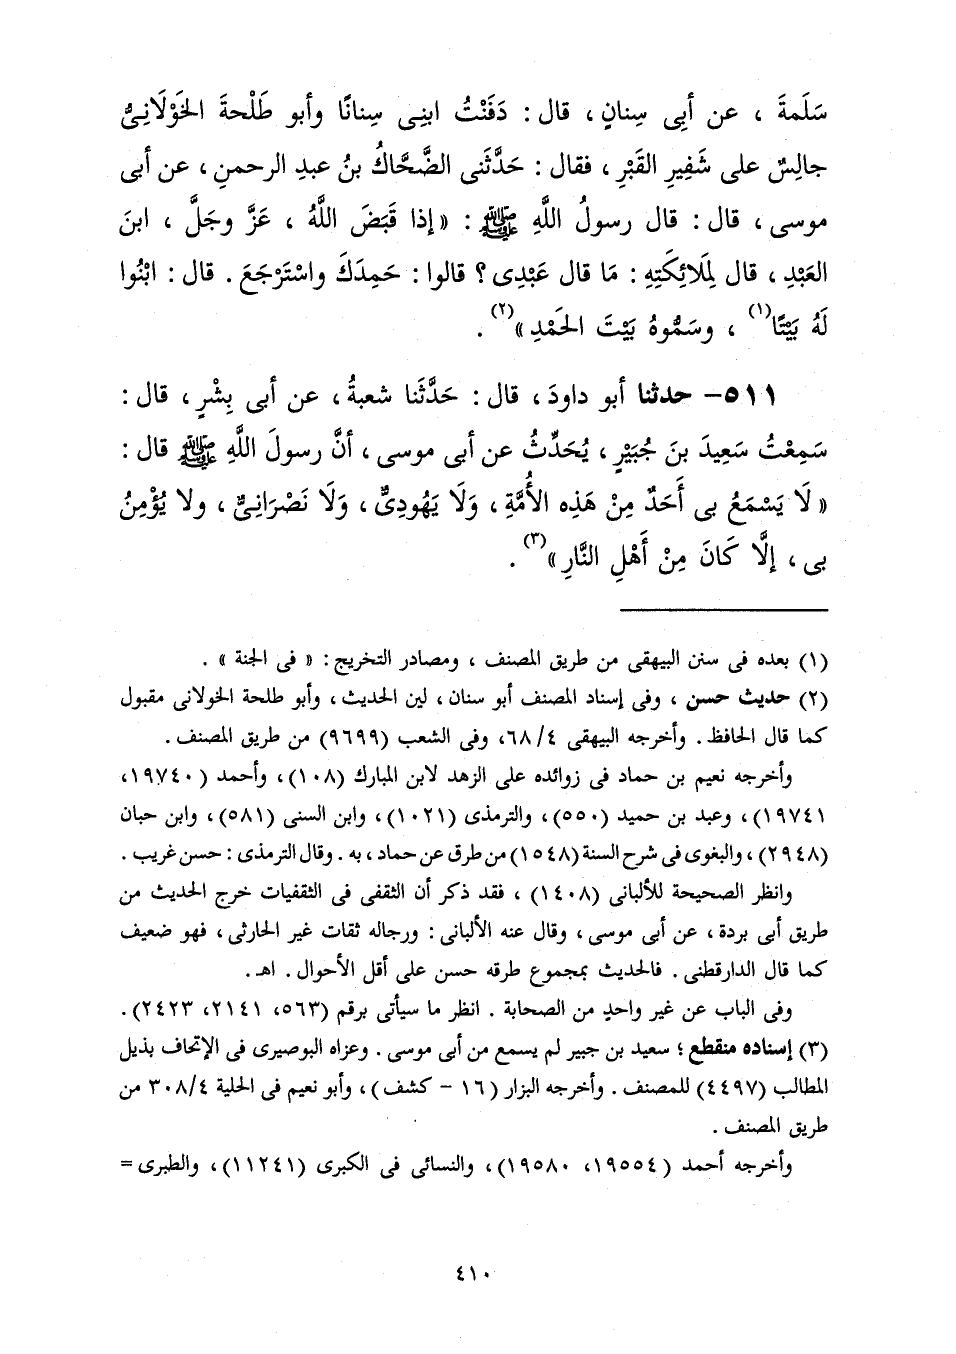 سَلَمةَ ، عن أبِى سِنانٍ ، قال : دَفَنْتُ ابنِى سِنانًا وأبو طَلْحةَ الخَوْلَانِىُّ
جالِسٌ على شَفِيرِ القَبْرِ ، فقال : حَدَّثَنى الضَّحَّاكُ بنُ عبدِ الرحمنِ ، عن أبى
موسى ، قال : قال رسولُ اللَّهِ ﷺ : « إذا قَبَضَ اللَّهُ ، عَزَّ وجَلَّ ، ابنَ
العَبْدِ ، قال لِمَلَائِكَتِهِ : مَا قال عَبْدِى ؟ قالوا : حَمِدَكَ واسْتَرْجَعَ . قال : ابْنُوا
لَهُ بَيْتًا(١) ، وسَمُّوهُ بَيْتَ الحَمْدِ »(٢) .
٥١١- حدثنا أبو داودَ ، قال : حَدَّثَنا شعبةُ ، عن أبى بِشْرٍ ، قال :
سَمِعْتُ سَعِيدَ بنَ جُبَيْرٍ ، يُحَدِّثُ عن أبى موسى ، أنَّ رسولَ اللَّهِ ﷺ قال :
« لَا يَسْمَعُ بى أَحَدٌ مِنْ هَذِه الأُمَّةِ ، وَلَا يَهُودِىٌّ ، وَلَا نَصْرَانِىٌّ ، ولا يُؤْمِنُ
بى ، إلَّا كَانَ مِنْ أَهْلِ النَّارِ »(٣) .
(١) بعده فى سنن البيهقى من طريق المصنف ، ومصادر التخريج : « فى الجنة » .
(٢) حديث حسن ، وفى إسناد المصنف أبو سنان ، لين الحديث ، وأبو طلحة الخولانى مقبول
كما قال الحافظ . وأخرجه البيهقى ٦٨/٤، وفى الشعب (٩٦٩٩) من طريق المصنف .
وأخرجه نعيم بن حماد فى زوائده على الزهد لابن المبارك (١٠٨) ، وأحمد (١٩٧٤٠،
١٩٧٤١) ، وعبد بن حميد (٥٥٠) ، والترمذى (١٠٢١) ، وابن السنى (٥٨١) ، وابن حبان
(٢٩٤٨) ، والبغوى فى شرح السنة (١٥٤٨) من طرق عن حماد ، به . وقال الترمذى : حسن غريب .
وانظر الصحيحة للألبانى (١٤٠٨) ، فقد ذكر أن الثقفى فى الثقفيات خرج الحديث من
طريق أبى بردة ، عن أبى موسى ، وقال عنه الألبانى : ورجاله ثقات غير الحارثى ، فهو ضعيف
كما قال الدارقطنى . فالحديث بمجموع طرقه حسن على أقل الأحوال . اهـ .
وفى الباب عن غير واحدٍ من الصحابة . انظر ما سيأتى برقم (٥٦٣، ٢١٤١، ٢٤٢٣) .
(٣) إسناده منقطع ؛ سعيد بن جبير لم يسمع من أبى موسى . وعزاه البوصيرى فى الإتحاف بذيل
المطالب (٤٤٩٧) للمصنف . وأخرجه البزار (١٦ - كشف) ، وأبو نعيم فى الحلية ٣٠٨/٤ من
طريق المصنف .
وأخرجه أحمد (١٩٥٥٤، ١٩٥٨٠) ، والنسائى فى الكبرى (١١٢٤١) ، والطبرى =
٤١٠